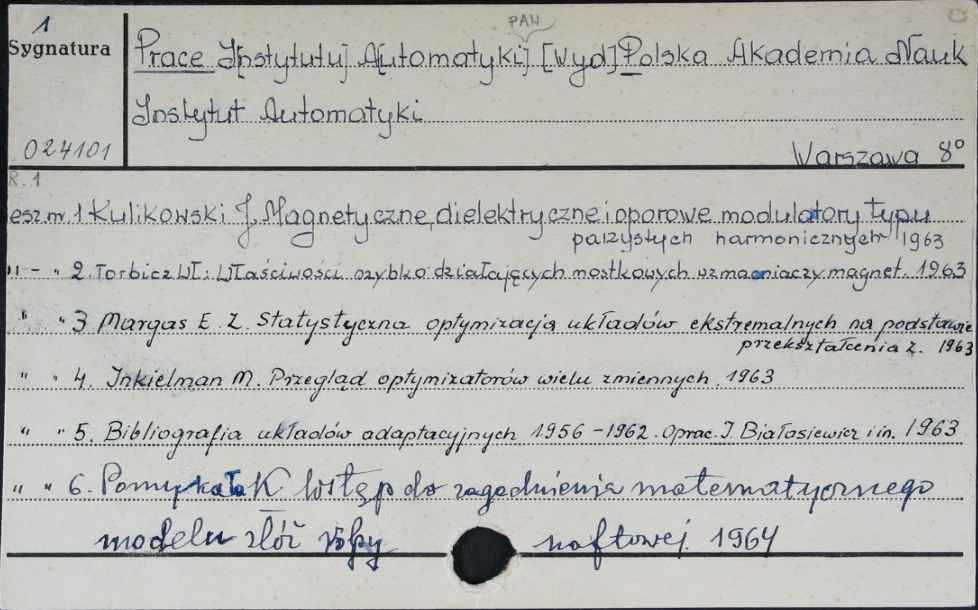 1
PAN
Sygnatura
Prace I[nstytutu] A[utomatyki] [Wyd] Polska Akademia Nauk
Instytut Automatyki
024101
Warszawa 8°
R. 1
zesz. nr. 1 Kulikowski J. Magnetyczne, dielektryczne i oporowe modulatory typu
parzystych harmonicznych 1963
" - " 2. Torbicz Wł: Właściwości szybko działających mostkowych wzmacniaczy magnet. 1963
" " 3 Margas E. Z. Statystyczna optymizacja układów ekstremalnych na podstawie
przekształcenia Z. 1963
" " 4. Inkielman M. Przegląd optymizatorów wielu zmiennych. 1963
" " 5. Bibliografia układów adaptacyjnych 1956-1962. Oprac. J. Białosiewicz i in. 1963
" " 6. Pomykała K. Wstęp do zagadnienia matematycznego
modelu złóż ropy naftowej 1964